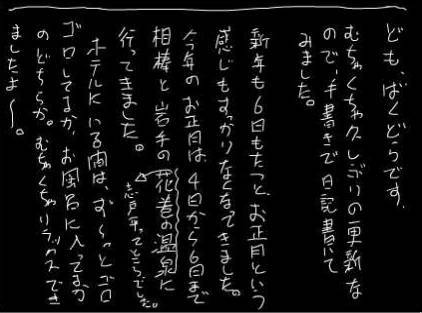 ども、ばくどらです。
むちゃくちゃ久しぶりの更新な
ので、手書きで日記書いて
みました。
新年も6日もたつと、お正月という
感じもすっかりなくなってきました。
今年のお正月は、4日から6日まで
相棒と岩手の花巻の温泉に
志戸平ってところでした。
行ってきました。
ホテルにいる間は、ず〜っとゴロ
ゴロしてるか、お風呂に入ってるか
のどちらか。むちゃくちゃリラックスでき
ましたよ〜。